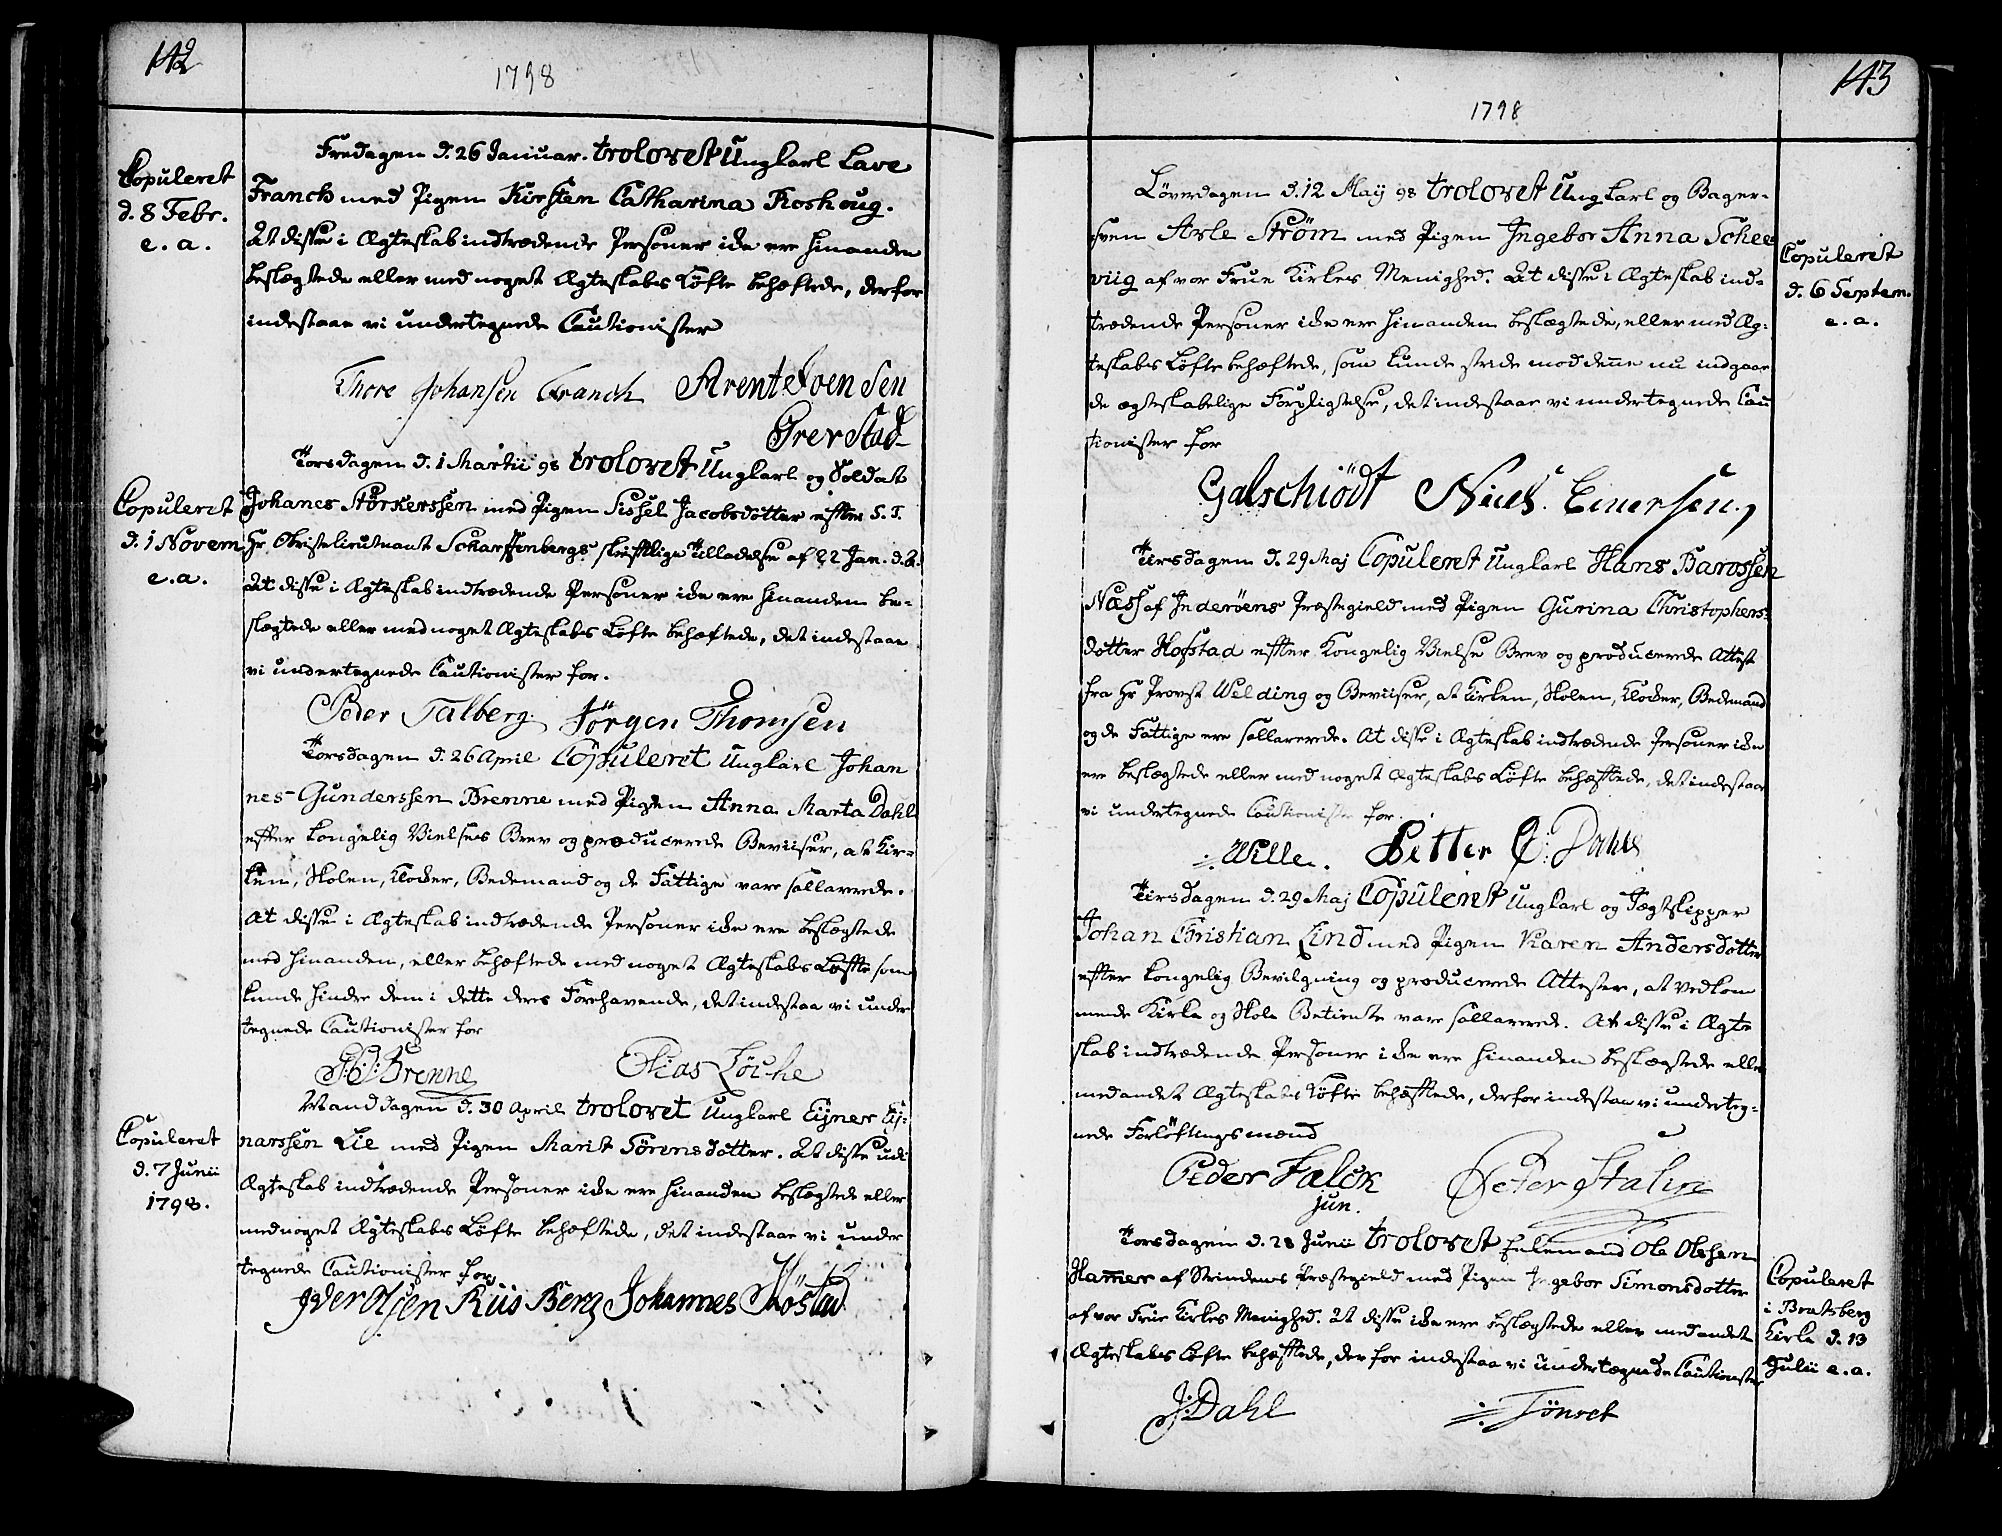 142
1798
Fredagen d. 26 Januar. troloved Ungkarl Lave
Copuleret
d. 8 Febr.
e. a.
Franck med Pigen Kirsten Catharina Roshoug.
At disse i Ægteskab indtrædende Personer icke ere hinanden
beslægtede eller med noget Ægteskabs Løfte behæftede, derfor
indestaae vi undertegnede Cautionister
Thore Johansen Franck Arent Svensen
Grerstad
Torsdagen d. 1 Martii 98 troloved Ungkarl og Soldat
Copuleret
d. 1 Novem
e. a.
Johanes Størkerssen med Pigen Sissel Jacobsdotter efter S. T.
Hr. Obristlieutnant Scharffenbergs skriftlige Tilladelse af 22 Jan. d. A.
At disse i Ægteskab indtrædende Personer icke ere hinanden be-
slægtede eller med noget Ægteskabs Løfte behæftede, det indestaae
vi undertegnede Cautionister for.
Peder Talberg Jørgen Thomsen
Torsdagen d. 26 April Copuleret Ungkarl Johan
nes Gunderssen Brenne med Pigen Anna Marta Dahl
efter kongelig Vielses Brev og producerede Beviiser, at Kir-
ken, Skolen, Klocker, Bedemand og de Fattige vare sallarerede.
At disse i Ægteskab indtrædende Personer icke ere beslægtede
med hinanden, eller behæftede med noget Ægteskabs Løffte som
kunde hindre dem i dette deres Forehavende, det indestaa vi under
tegnede Cautionister for
Brenne Elias Løche
Manddagen d. 30 April troloved Ungkarl Ejner Ej-
Copuleret
d. 7 Junii
1798.
narssen Lie med Pigen Marit Sörensdotter. At disse udi
Ægteskab indtrædende Personer icke ere hinanden beslægtede eller
med noget Ægteskabs Løfte behæftede, det indestaae vi under
tegnede Cautionister for
Iver Olsen Riis Berg Johannes Sköstad
143
1798
Løverdagen d. 12 Maij 98 troloved Ungkarl og Bager-
sven Arle Strøm med Pigen Ingebor Anna Schee
Copuleret
d. 6 Septem.
e. a.
viig af vor Frue Kirkes Menighed. At disse i Ægteskab ind-
trædende Personer icke ere hinanden beslægtede, eller med Æg-
teskabs Løfte behæftede, som kunde stride mod denne nu indgaae
de ægteskabelige Forpligtelse, det indestaae vi undertegnede Cau
tionister for
Galschiödt Niels Einersen,
Tirsdagen d. 29 Maj Copuleret Ungkarl Hans Barossen
Næss af Inderöens Præstegield med Pigen Gurina Christophers-
dotter Hofstad efter Kongelig Vielse Brev og producerede Attest
fra Hr. Provst Welding og Beviiser, at Kirken, Skolen, Klocker, Bedemand
og de Fattige ere sallarerede. At disse i Ægteskab indtrædende Personer icke
ere beslægtede eller med noget Ægteskabs Løfte behæfftede, det indestaae
vi undertegnede Cautionister for
Wille. Petter Dahls
Tirsdagen d. 29 Maj Copuleret Ungkarl og Jægtskipper
Johan Cristian Lind med Pigen Karen Andersdotter
efter kongelig Bevilgning og producerede Attester, at Vedkom
mende Kirke og Skole Betiente vare sallarerede. At disse i Ægte
skab indtrædende Personer icke ere hinanden beslægtede eller
med andet Ægteskabs Løfte behæfftede, derfor indestaae vi underteg-
nede Forløftingsmænd
Peder Falck Peter Stalin
jun.
Torsdagen d. 28 Junii troloved Enkemand Ole Olessen
Hamer af Strindens Præstegield med Pigen Ingebor Simonsdotter
Copuleret
i Bratsberg
Kirke d. 13
Julii e. a.
af vor Frue Kirkes Menighed. At disse icke ere beslægtede eller med andet
Ægteskabs Løfte behæfftede, derfor indestaa vi undertægnede Cautionister
J. Dahl Tönset